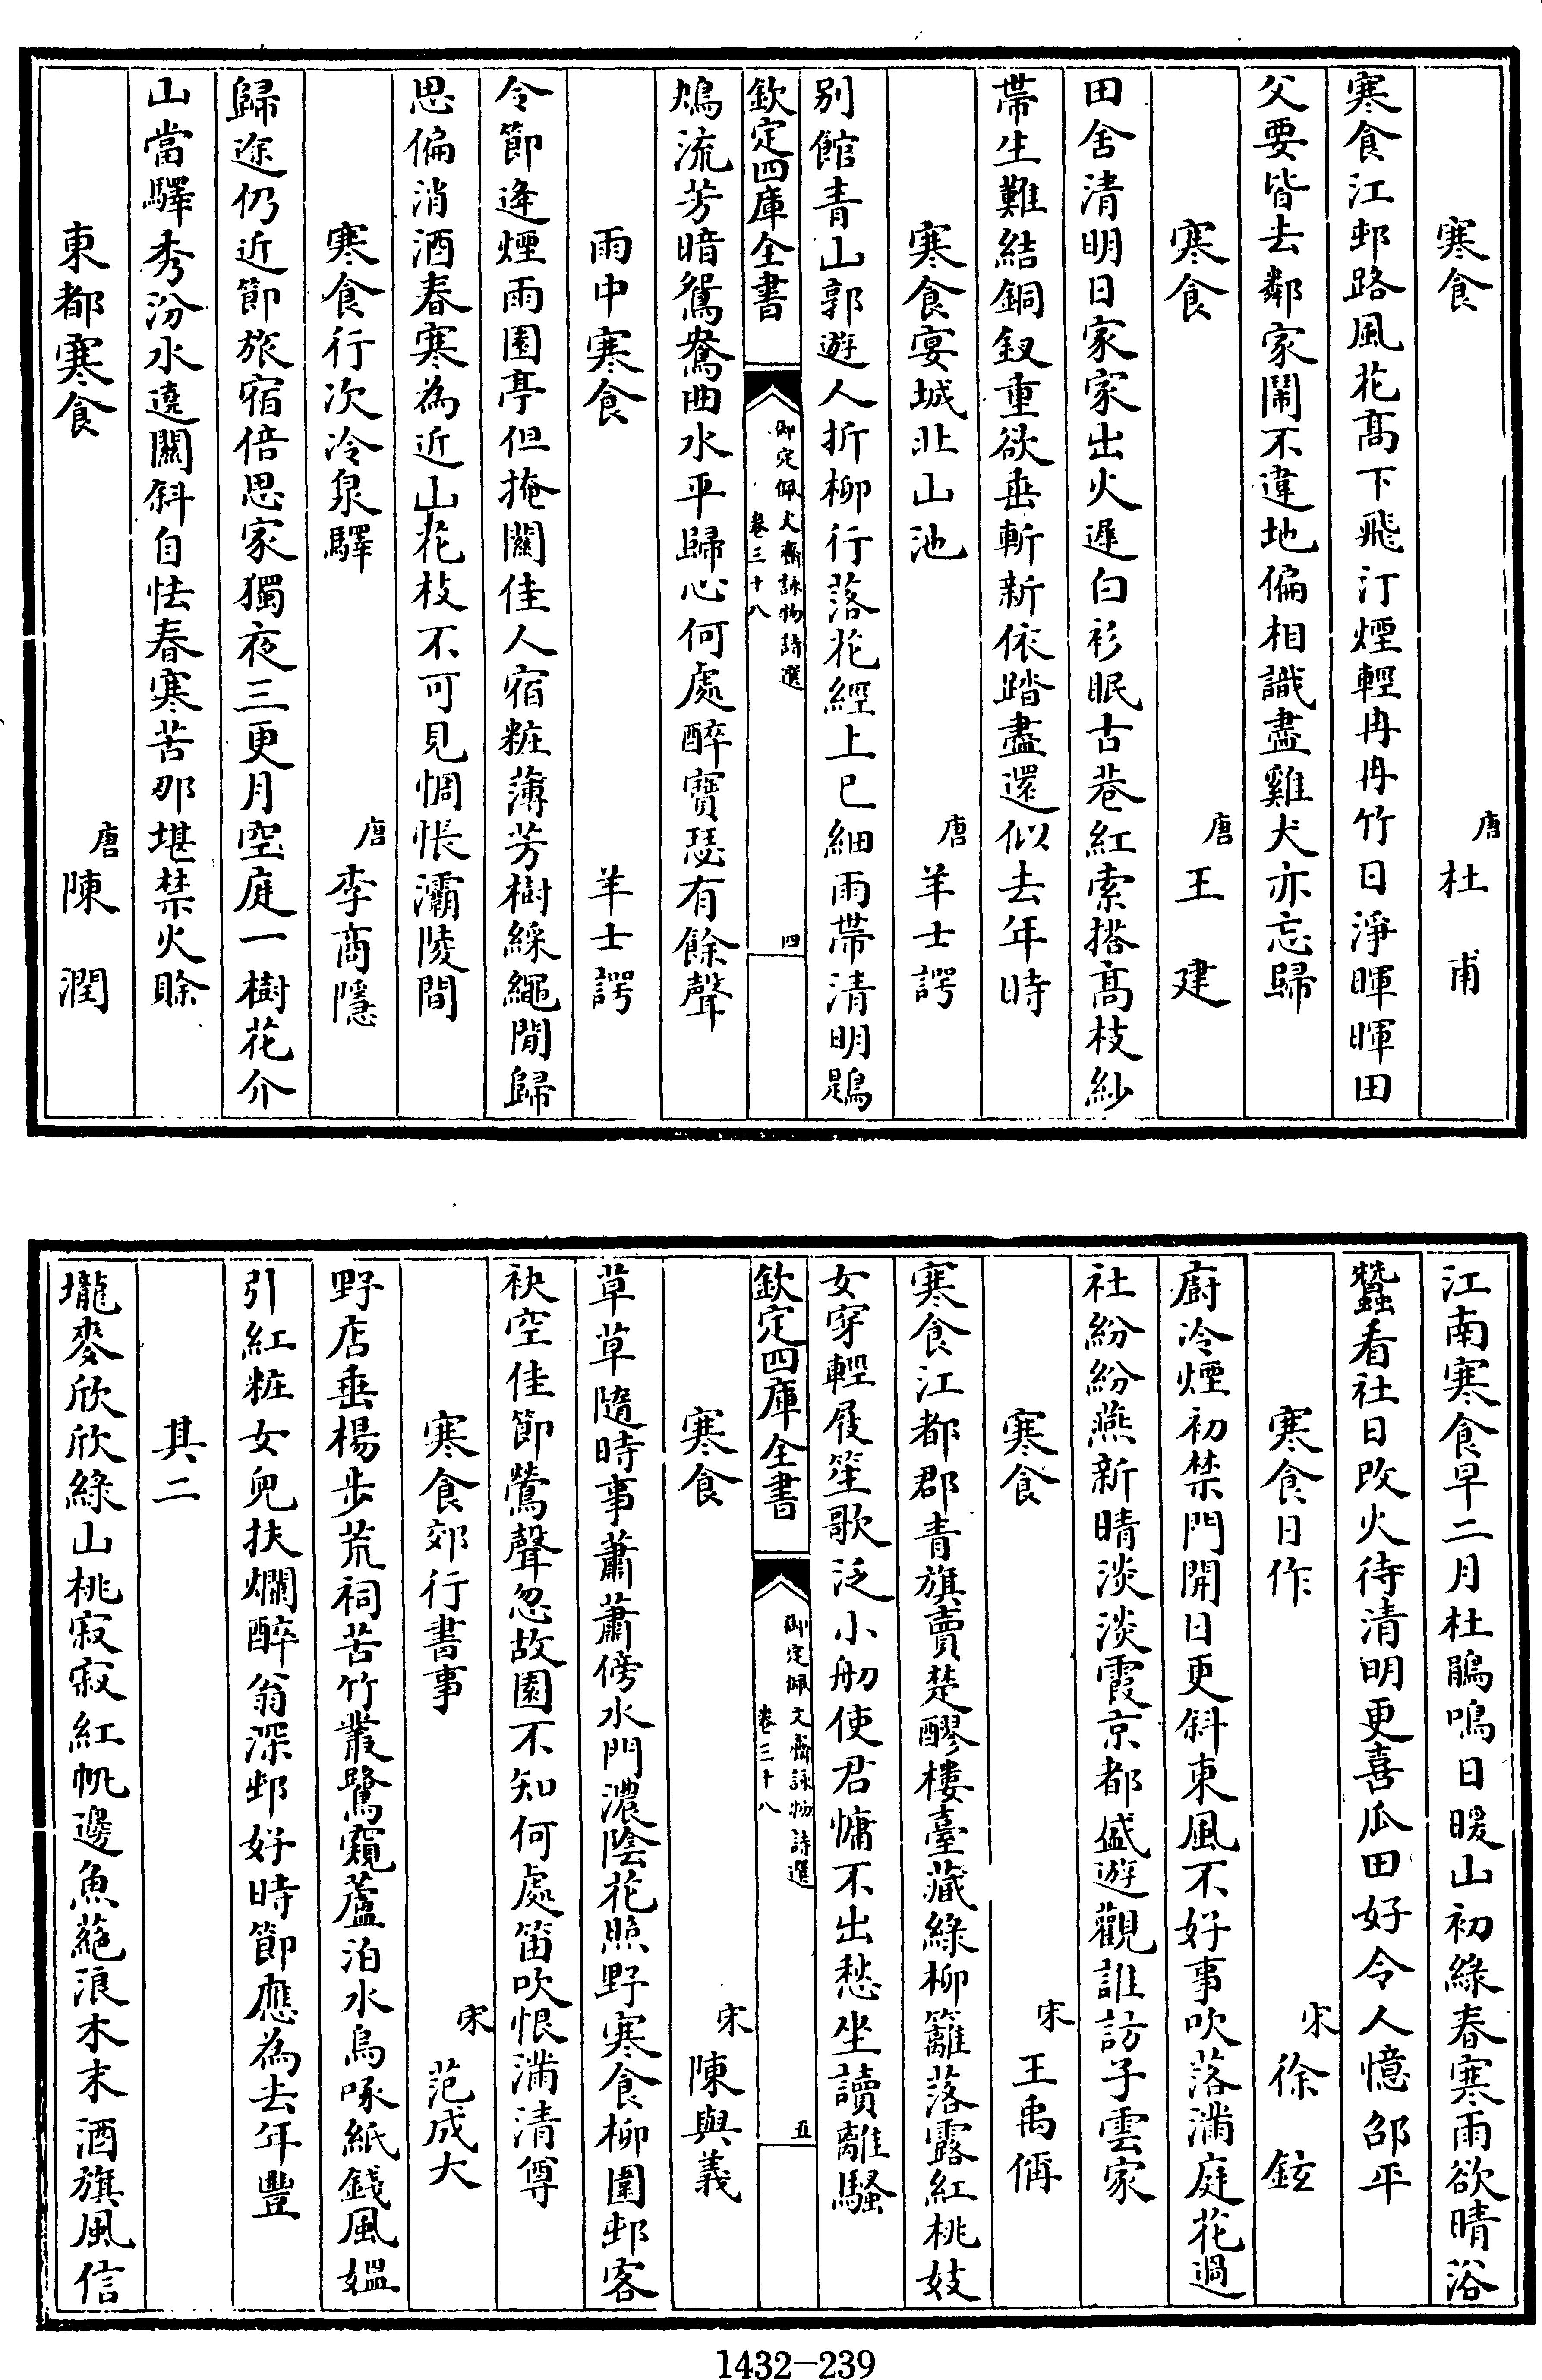 寒食　唐杜甫
寒食江邨路風花髙下飛汀煙輕冉冉竹日淨暉暉田
父要皆去鄰家鬧不違地偏相識盡雞犬亦忘歸
寒食　唐王建
田舍清明日家家出火遲白衫眠古巷紅索搭髙枝紗
帶生難結銅釵重欲垂斬新依踏盡還似去年時
寒食宴城北山池　唐羊士諤
别館青山郭遊人折柳行落花經上巳細雨帶清明鶗
欽定四庫全書
御定佩文齋詠物詩選
卷三十八
四
鴂流芳暗鴛鴦曲水平歸心何處醉寶瑟有餘聲
雨中寒食　羊士諤
令節逢煙雨園亭但掩關佳人宿粧薄芳樹綵繩閒歸
思偏消酒春寒為近山花枝不可見惆悵灞陵間
寒食行次冷泉驛　唐李商隱
歸途仍近節旅宿倍思家獨夜三更月空庭一樹花介
山當驛秀汾水遶關斜自怯春寒苦那堪禁火賖
東都寒食　唐陳潤
江南寒食早二月杜鵑鳴日暖山初綠春寒雨欲晴浴
蠶看社日改火待清明更喜瓜田好令人憶邵平
寒食日作　宋徐鉉
廚冷煙初禁門開日更斜東風不好事吹落滿庭花過
社紛紛燕新晴淡淡霞京都盛遊觀誰訪子雲家
寒食　宋王禹偁
寒食江都郡青旗賣楚醪樓臺藏綠柳籬落露紅桃妓
女穿輕屐笙歌泛小舠使君慵不出愁坐讀離騷
欽定四庫全書
御定佩文齋詠物詩選
卷三十八
五
寒食　宋陳與義
草草隨時事蕭蕭傍水門濃陰花照野寒食柳圍邨客
袂空佳節鶯聲忽故園不知何處笛吹恨滿清尊
寒食郊行書事　宋范成大
野店垂楊步荒祠苦竹叢鷺窺蘆泊水烏啄紙錢風媪
引紅粧女兒扶爛醉翁深邨好時節應為去年豐
其二
壠麥欣欣綠山桃寂寂紅帆邊魚蕝浪木末酒旗風信
1432-239